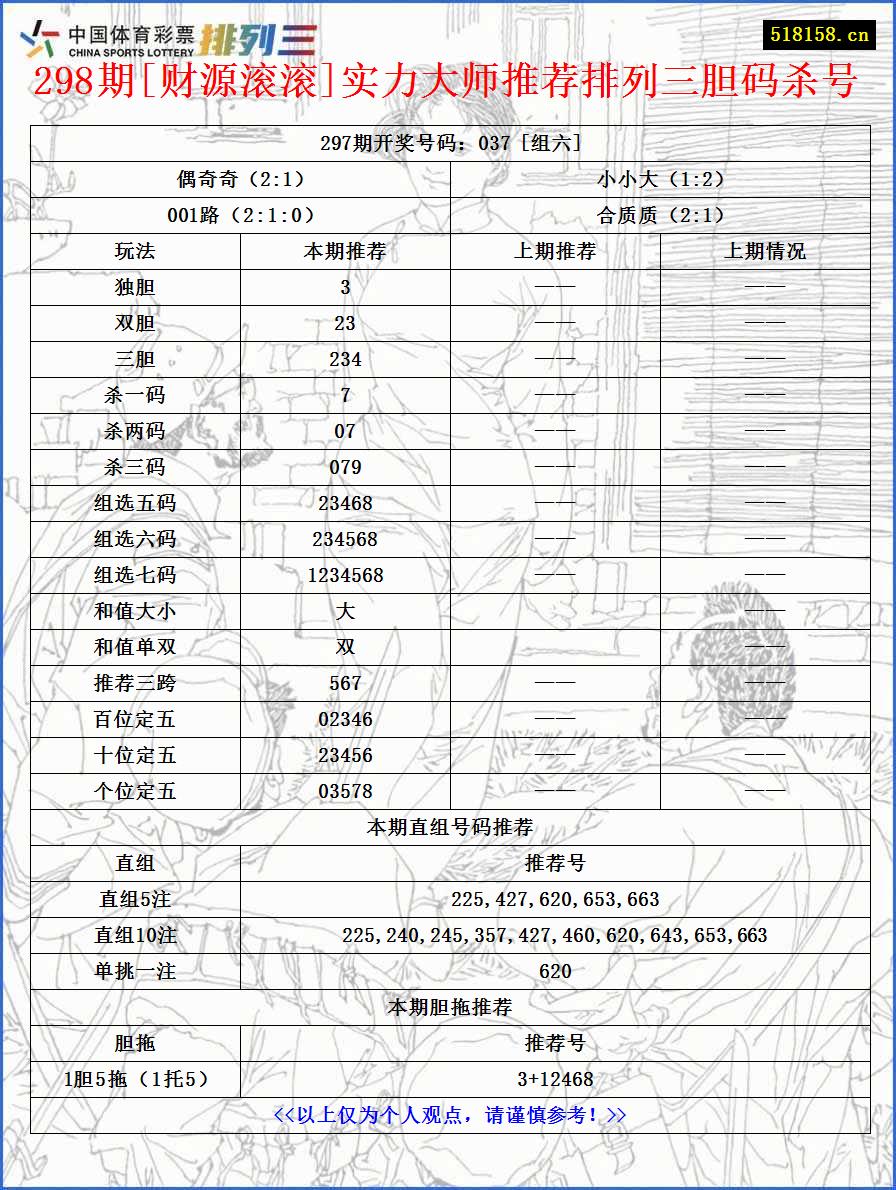 中国体育彩票 排列三
CHINA SPORTS LOTTERY
518158.cn
298期[财源滚滚]实力大师推荐排列三胆码杀号
297期开奖号码：037 [组六]
偶奇奇（2:1） 小小大（1:2）
001路（2:1:0） 合质质（2:1）
玩法 本期推荐 上期推荐 上期情况
独胆 3 —— ——
双胆 23 —— ——
三胆 234 —— ——
杀一码 7 —— ——
杀两码 07 —— ——
杀三码 079 —— ——
组选五码 23468 —— ——
组选六码 234568 —— ——
组选七码 1234568 —— ——
和值大小 大 ——
和值单双 双 ——
推荐三跨 567 —— ——
百位定五 02346 —— ——
十位定五 23456 —— ——
个位定五 03578 —— ——
本期直组号码推荐
直组 推荐号
直组5注 225,427,620,653,663
直组10注 225,240,245,357,427,460,620,643,653,663
单挑一注 620
本期胆拖推荐
胆拖 推荐号
1胆5拖（1托5） 3+12468
<<以上仅为个人观点，请谨慎参考！>>